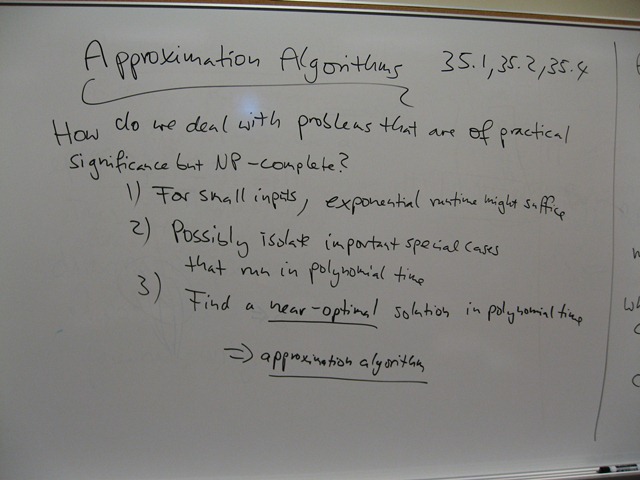 Approximation Algorithms 35.1, 35.2, 35.4
How do we deal with problems that are of practical
significance but NP-complete?
1) For small inputs, exponential runtime might suffice
2) Possibly isolate important special cases
that run in polynomial time
3) Find a near-optimal solution in polynomial time
=> approximation algorithm